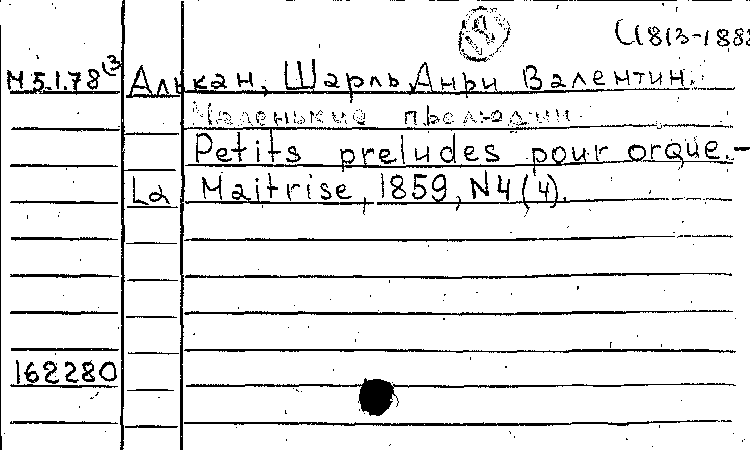 (1813-188
М5.1.78(3 Алькан, Шарль Анри Валентин.
Маленькие прелюдии.
Petits preludes pour orque.-
La Maitrise, 1859, N4(4).
162280